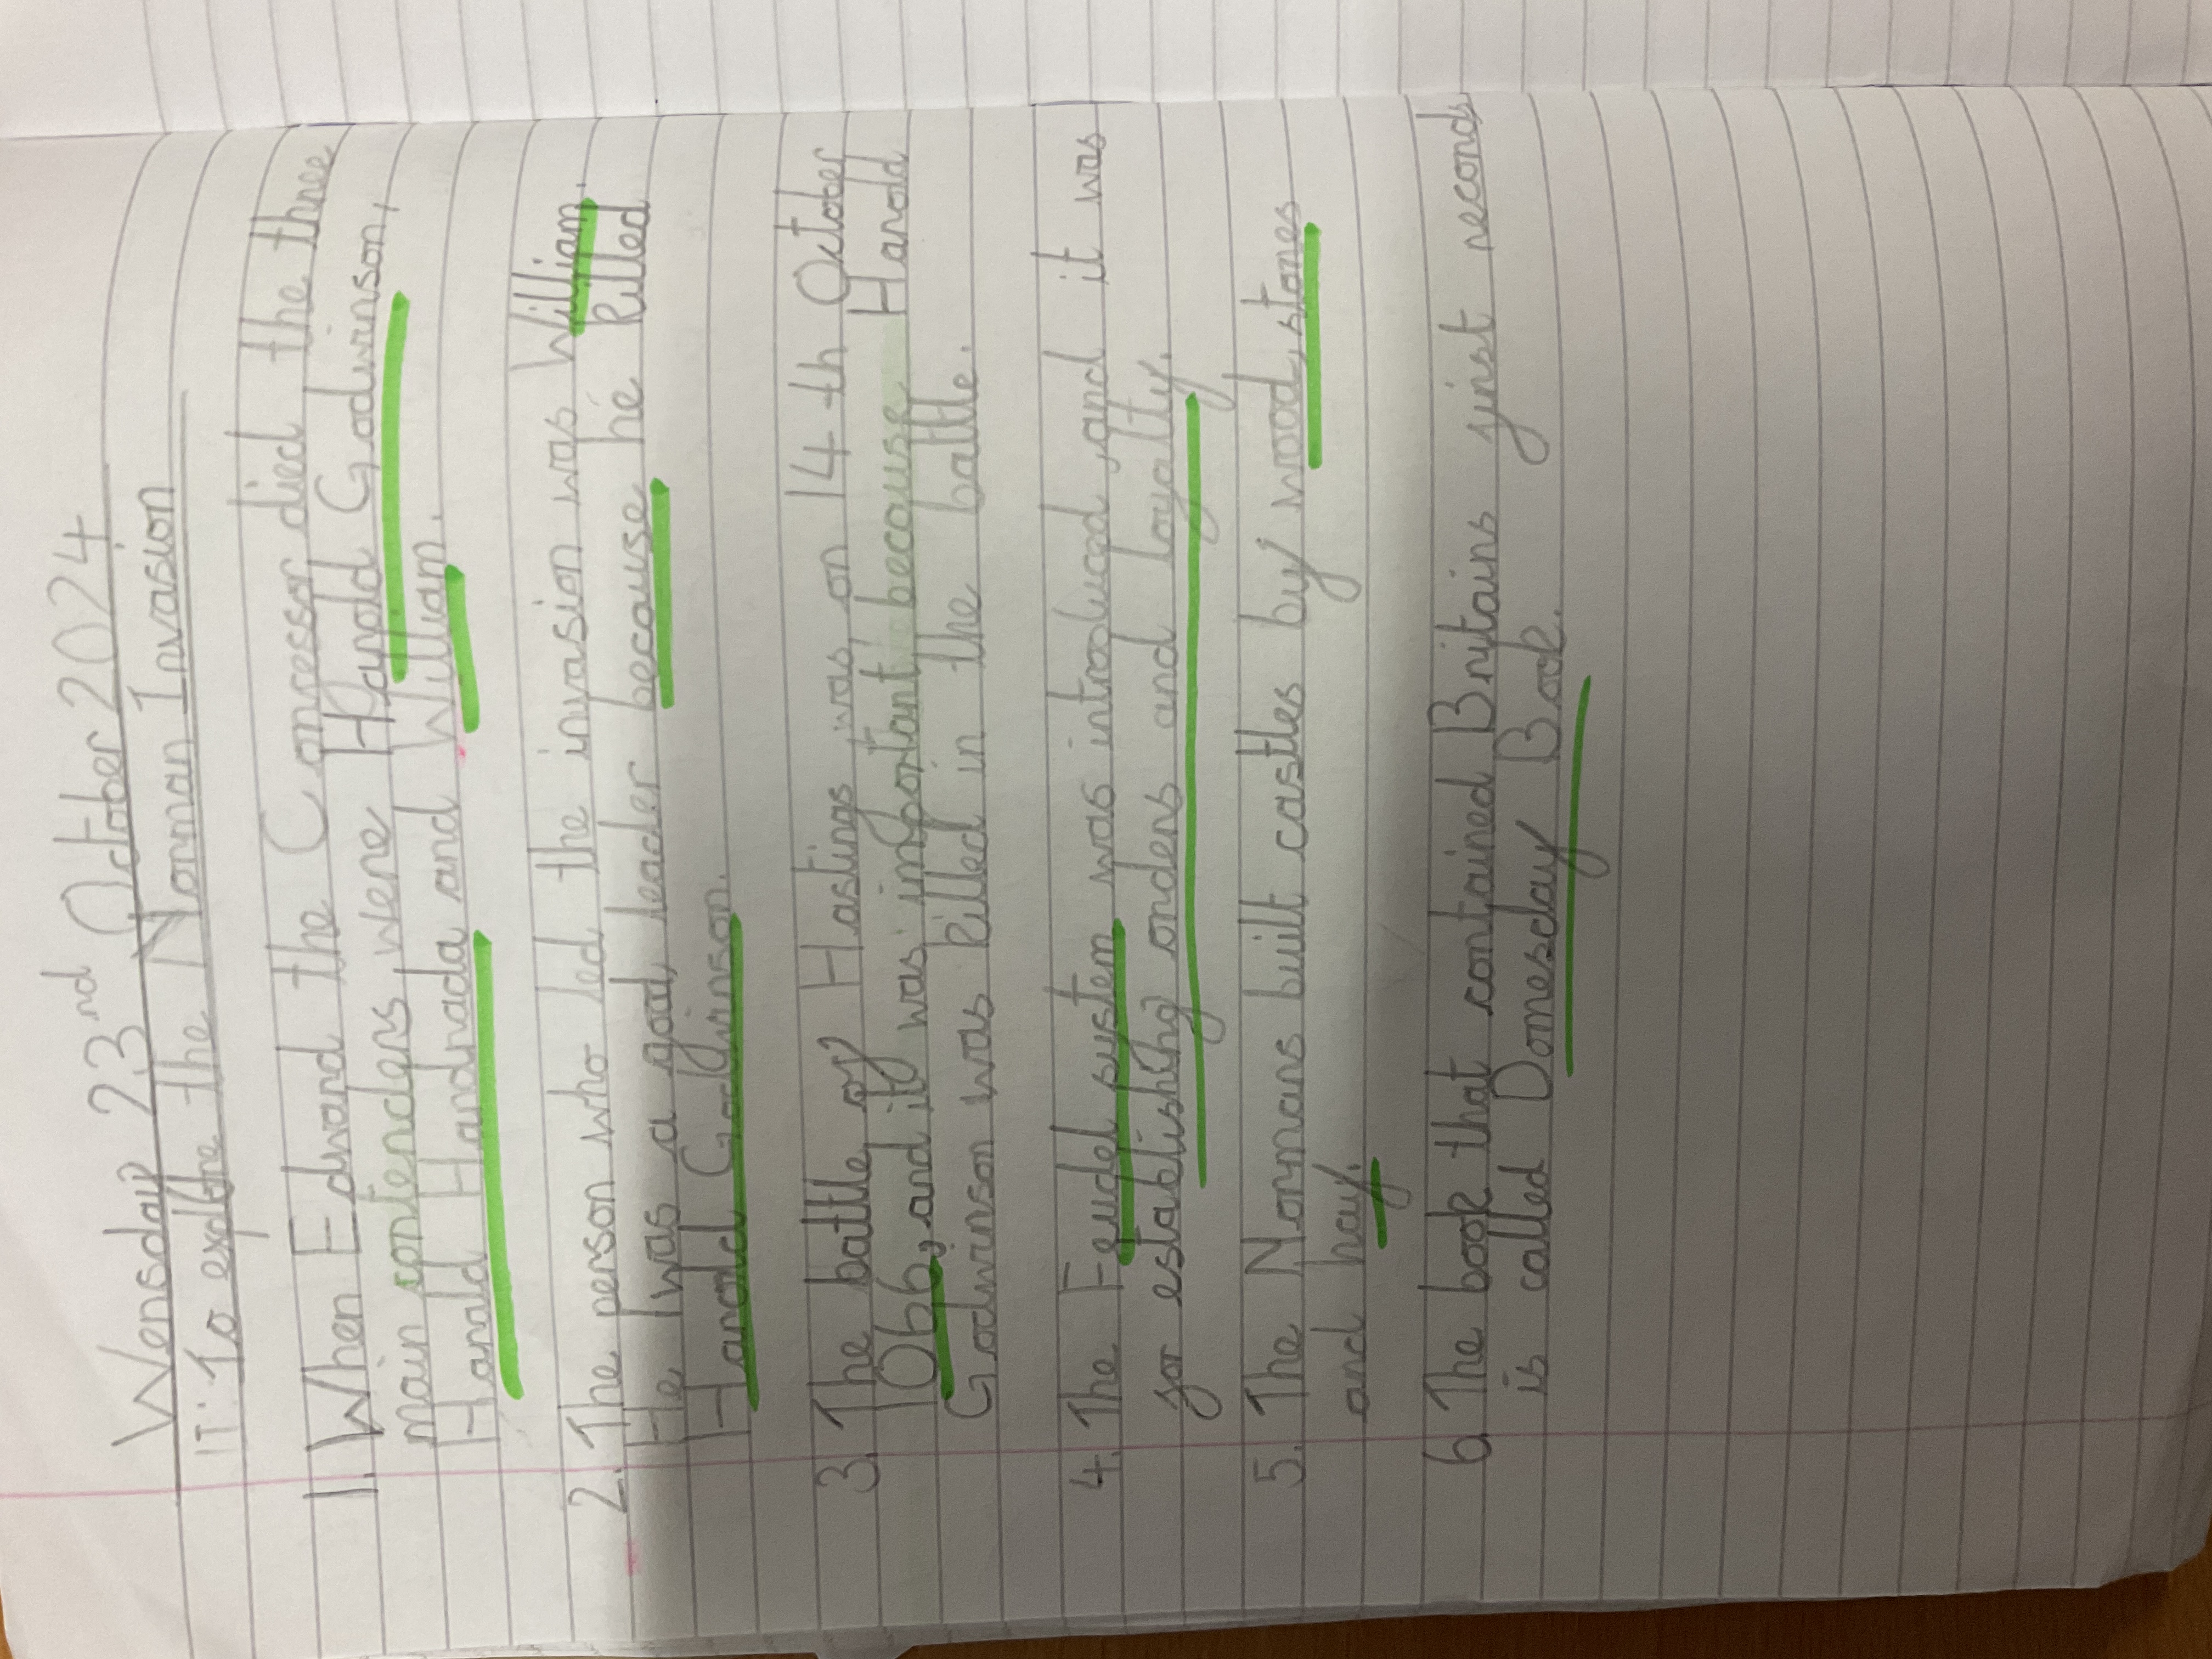 Wensday 23nd October 2024
IT: To explore the Norman Invasion
1. When Edward the Confessor died the three
main contenders were Harold Godwinson,
Harald Hardrada and William.
2. The person who led the invasion was William.
He was a good leader because he killed
Harold Godwinson.
3. The battle of Hastings was on 14th October
1066, and it was important because Harold
Godwinson was killed in the battle.
4. The Feudel system was introduced, and it was
for establishing orders and loyalty.
5. The Normans built castles by wood, stones
and hay.
6. The book that contained Britains first records
is called Domesday Book.